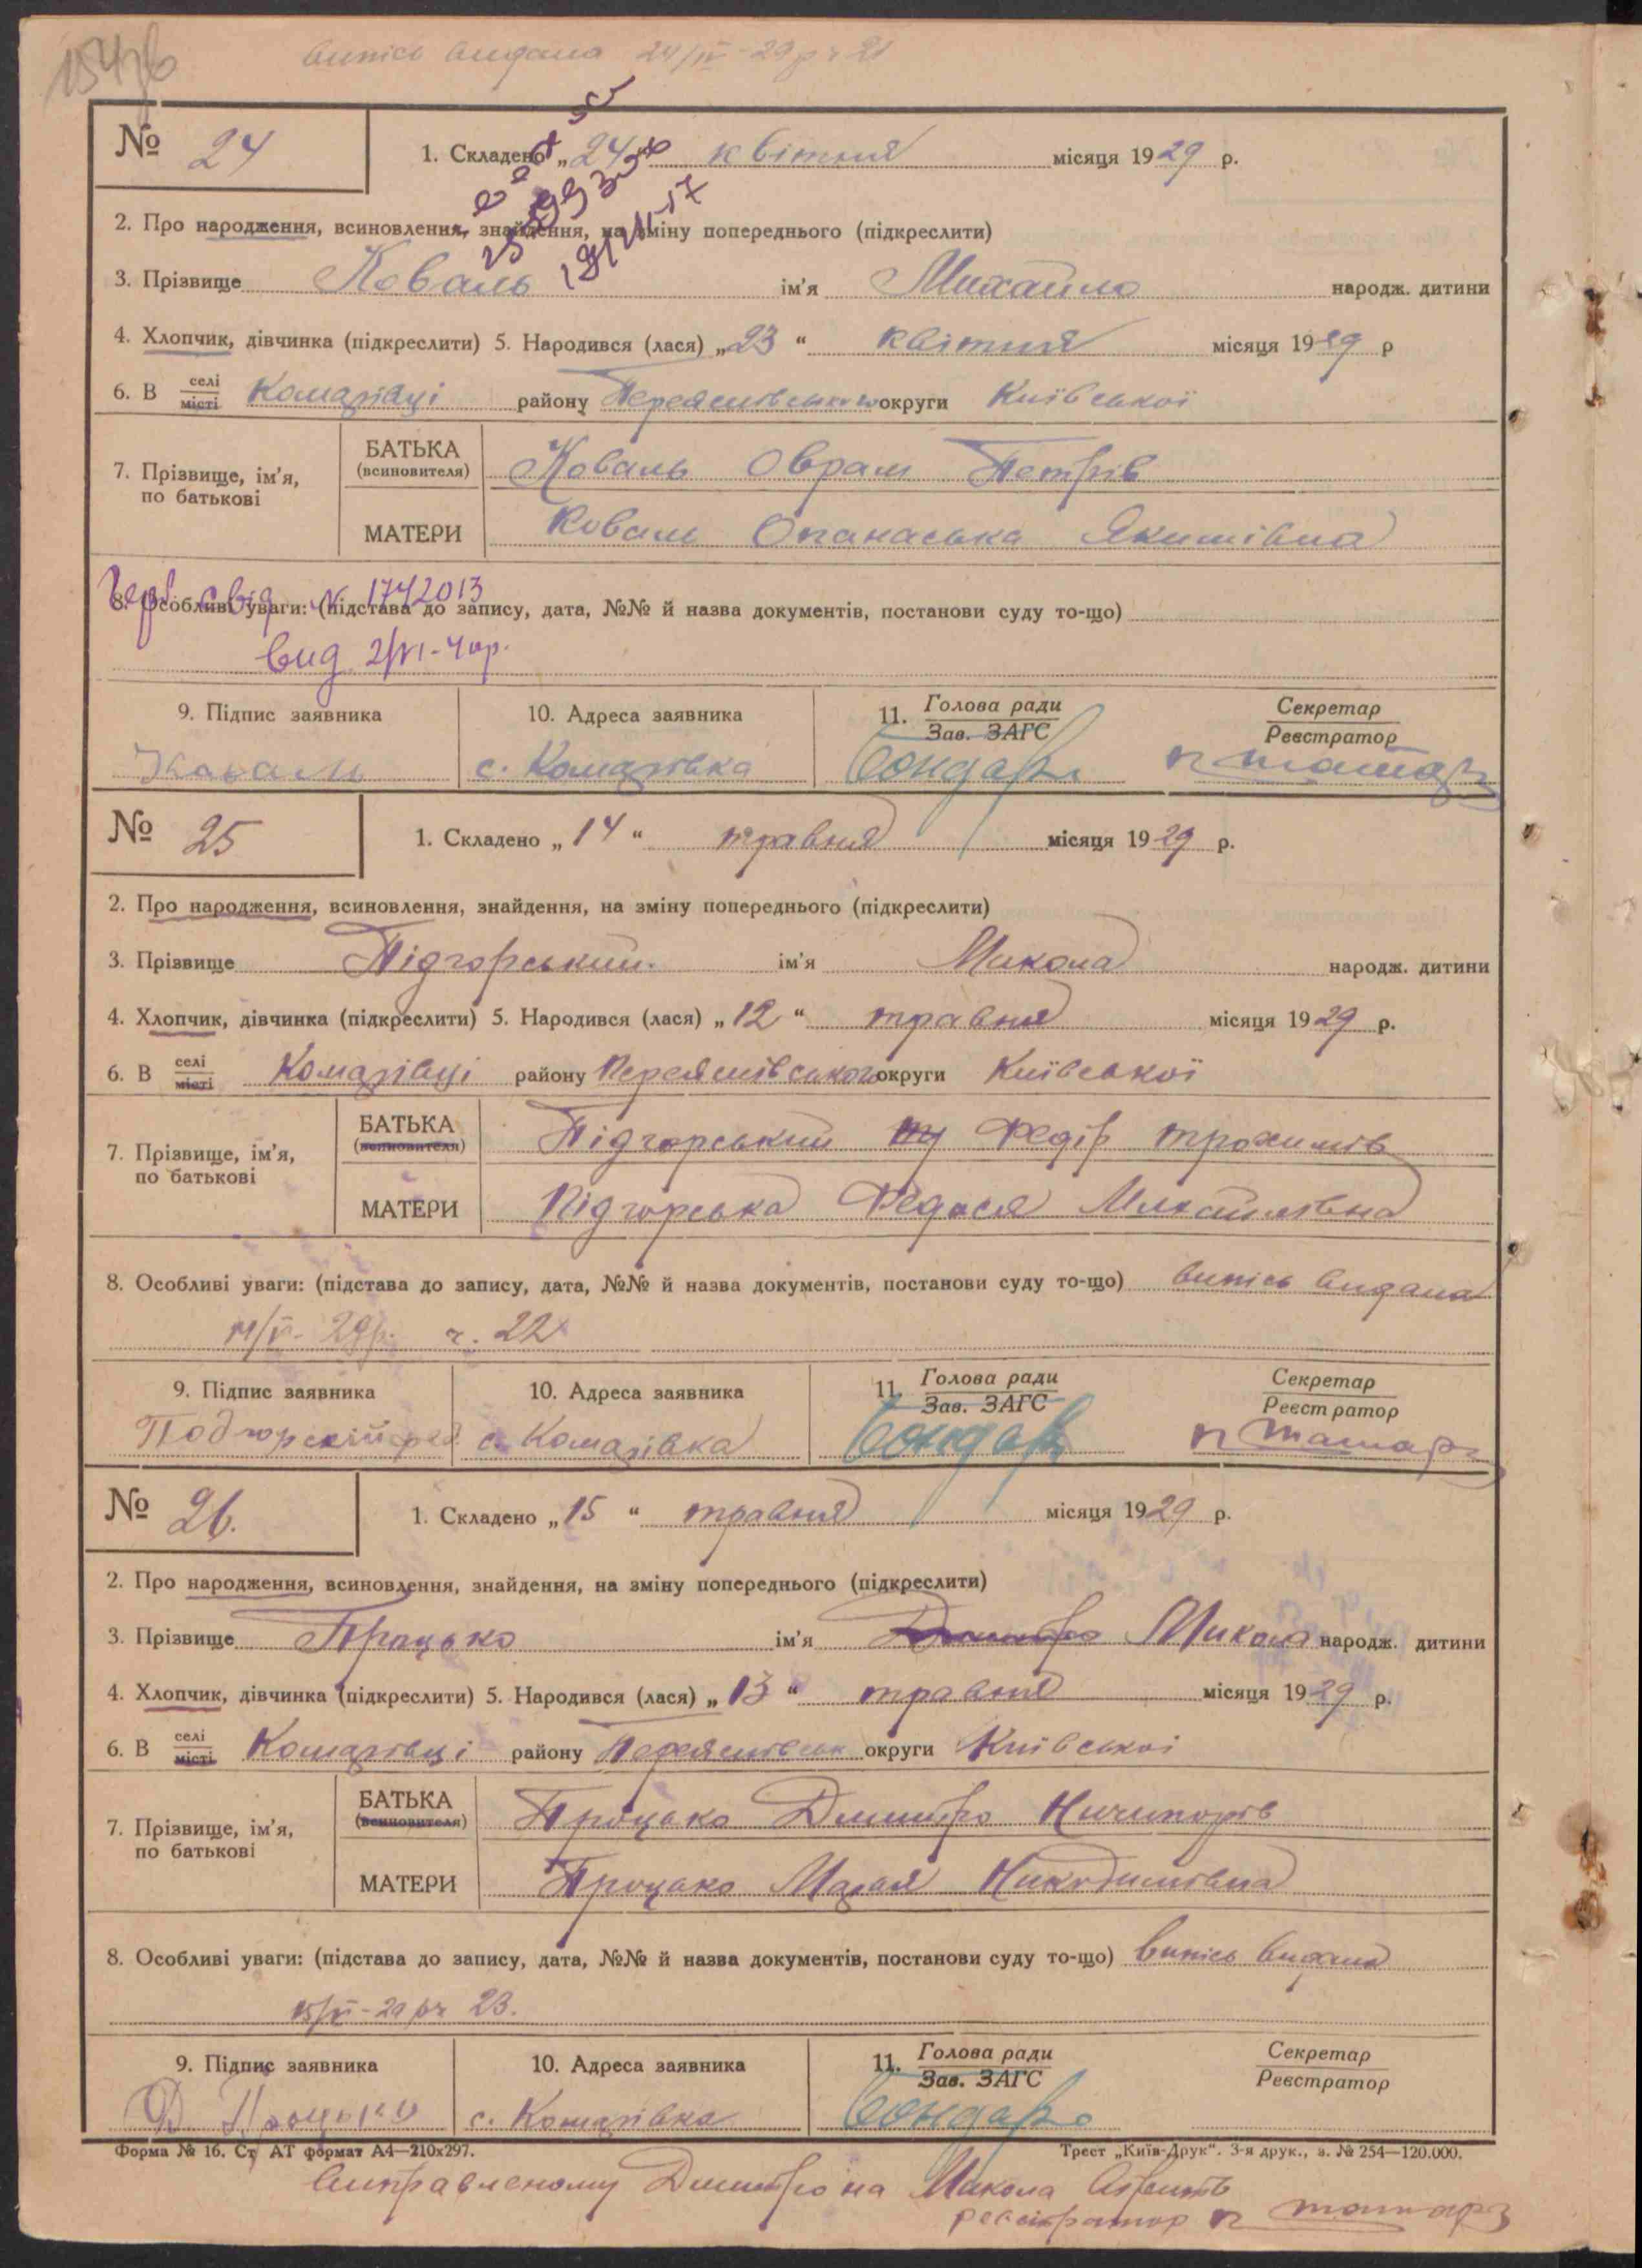 випись видана 24/IV-29р ч 21
№ 24
1. Складено „24“ квітня місяця 1929 р.
2. Про народження, всиновлення, знайдення, на зміну попереднього (підкреслити)
3. Прізвище Коваль ім'я Михайло народж. дитини
4. Хлопчик, дівчинка (підкреслити) 5. Народився (лася) „23“ квітня місяця 1929 р
6. В селі місті Комарівці району Переяслівського округи Київської
7. Прізвище, ім'я, по батькові
БАТЬКА (всиновителя) Коваль Оврам Петрів
МАТЕРИ Коваль Опанаська Якимівна
8. Особливі уваги: (підстава до запису, дата, №№ й назва документів, постанови суду то-що)
свід № 1742013
вид 2/VI-40р.
9. Підпис заявника 10. Адреса заявника 11. Голова ради Зав. ЗАГС Секретар Реєстратор
Коваль с. Комарівка Бондар
№ 25
1. Складено „14“ травня місяця 1929 р.
2. Про народження, всиновлення, знайдення, на зміну попереднього (підкреслити)
3. Прізвище Підгорський ім'я Микола народж. дитини
4. Хлопчик, дівчинка (підкреслити) 5. Народився (лася) „12“ травня місяця 1929 р.
6. В селі місті Комарівці району Переяслівського округи Київської
7. Прізвище, ім'я, по батькові
БАТЬКА (всиновителя) Підгорський Федір Трохимів
МАТЕРИ Підгорська Федося Михайлівна
8. Особливі уваги: (підстава до запису, дата, №№ й назва документів, постанови суду то-що) випись видана
14/V-29р. ч. 22
9. Підпис заявника 10. Адреса заявника 11. Голова ради Зав. ЗАГС Секретар Реєстратор
Подгорский с. Комарівка Бондар
№ 26.
1. Складено „15“ травня місяця 1929 р.
2. Про народження, всиновлення, знайдення, на зміну попереднього (підкреслити)
3. Прізвище Процько ім'я Дмитро Микола народж. дитини
4. Хлопчик, дівчинка (підкреслити) 5. Народився (лася) „13“ травня місяця 1929 р.
6. В селі місті Комарівці району Переяслівськ округи Київської
7. Прізвище, ім'я, по батькові
БАТЬКА (всиновителя) Процько Дмитро Ничипорів
МАТЕРИ Процько Марія Никодимівна
8. Особливі уваги: (підстава до запису, дата, №№ й назва документів, постанови суду то-що) випись видана
15/V-29 р ч 23.
9. Підпис заявника 10. Адреса заявника 11. Голова ради Зав. ЗАГС Секретар Реєстратор
Д Процько с. Комарівка Бондар
Форма № 16. Ст АТ формат А4—210х297. Трест „Київ-Друк“. 3-я друк., з. № 254—120.000.
виправленому Дмитро на Микола вірить
реєстратор